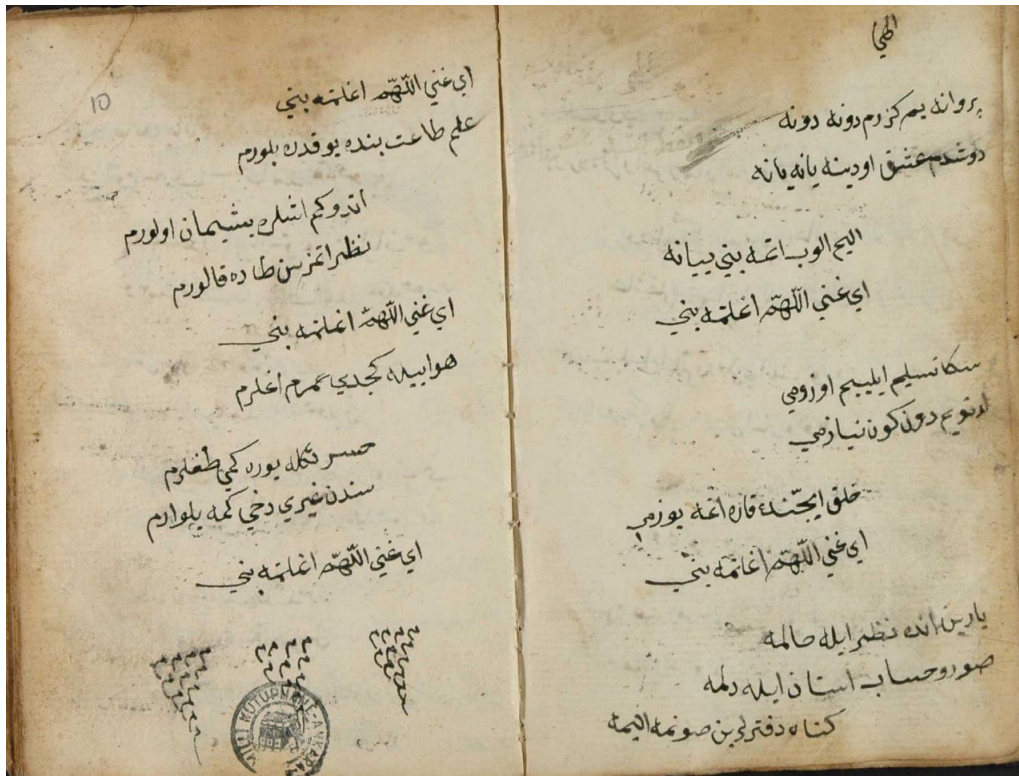 الهي
پروانه يم كزرم دونه دونه
دوشدم عشق اودينه يانه يانه
اليم الوب اتمه بني بيانه
اي غني اللهم اغلتمه بني
سكا تسليم ايلييم اوزومي
دون كون نيازمي
خلق ايچنده قاره اتمه يوزمي
اي غني اللهم اغلتمه بني
يارين انده نظر ايله حالمه
صورو حساب اسان ايله دلمه
كناه دفترلرين صونمه اليمه
10
اي غني اللهم اغلتمه بني
علم طاعت بنده يوقدر بلورم
اتدوكم اشلره پشيمان اولورم
نظر اتمزسن طاده قالورم
اي غني اللهم اغلتمه بني
هواييله كچدي عمرم اغلرم
حسرتكله يوره كمي طغلرم
سندن غيري دخي كمه يلوارم
اي غني اللهم اغلتمه بني
MİLLİ KÜTÜPHANE-ANKARA